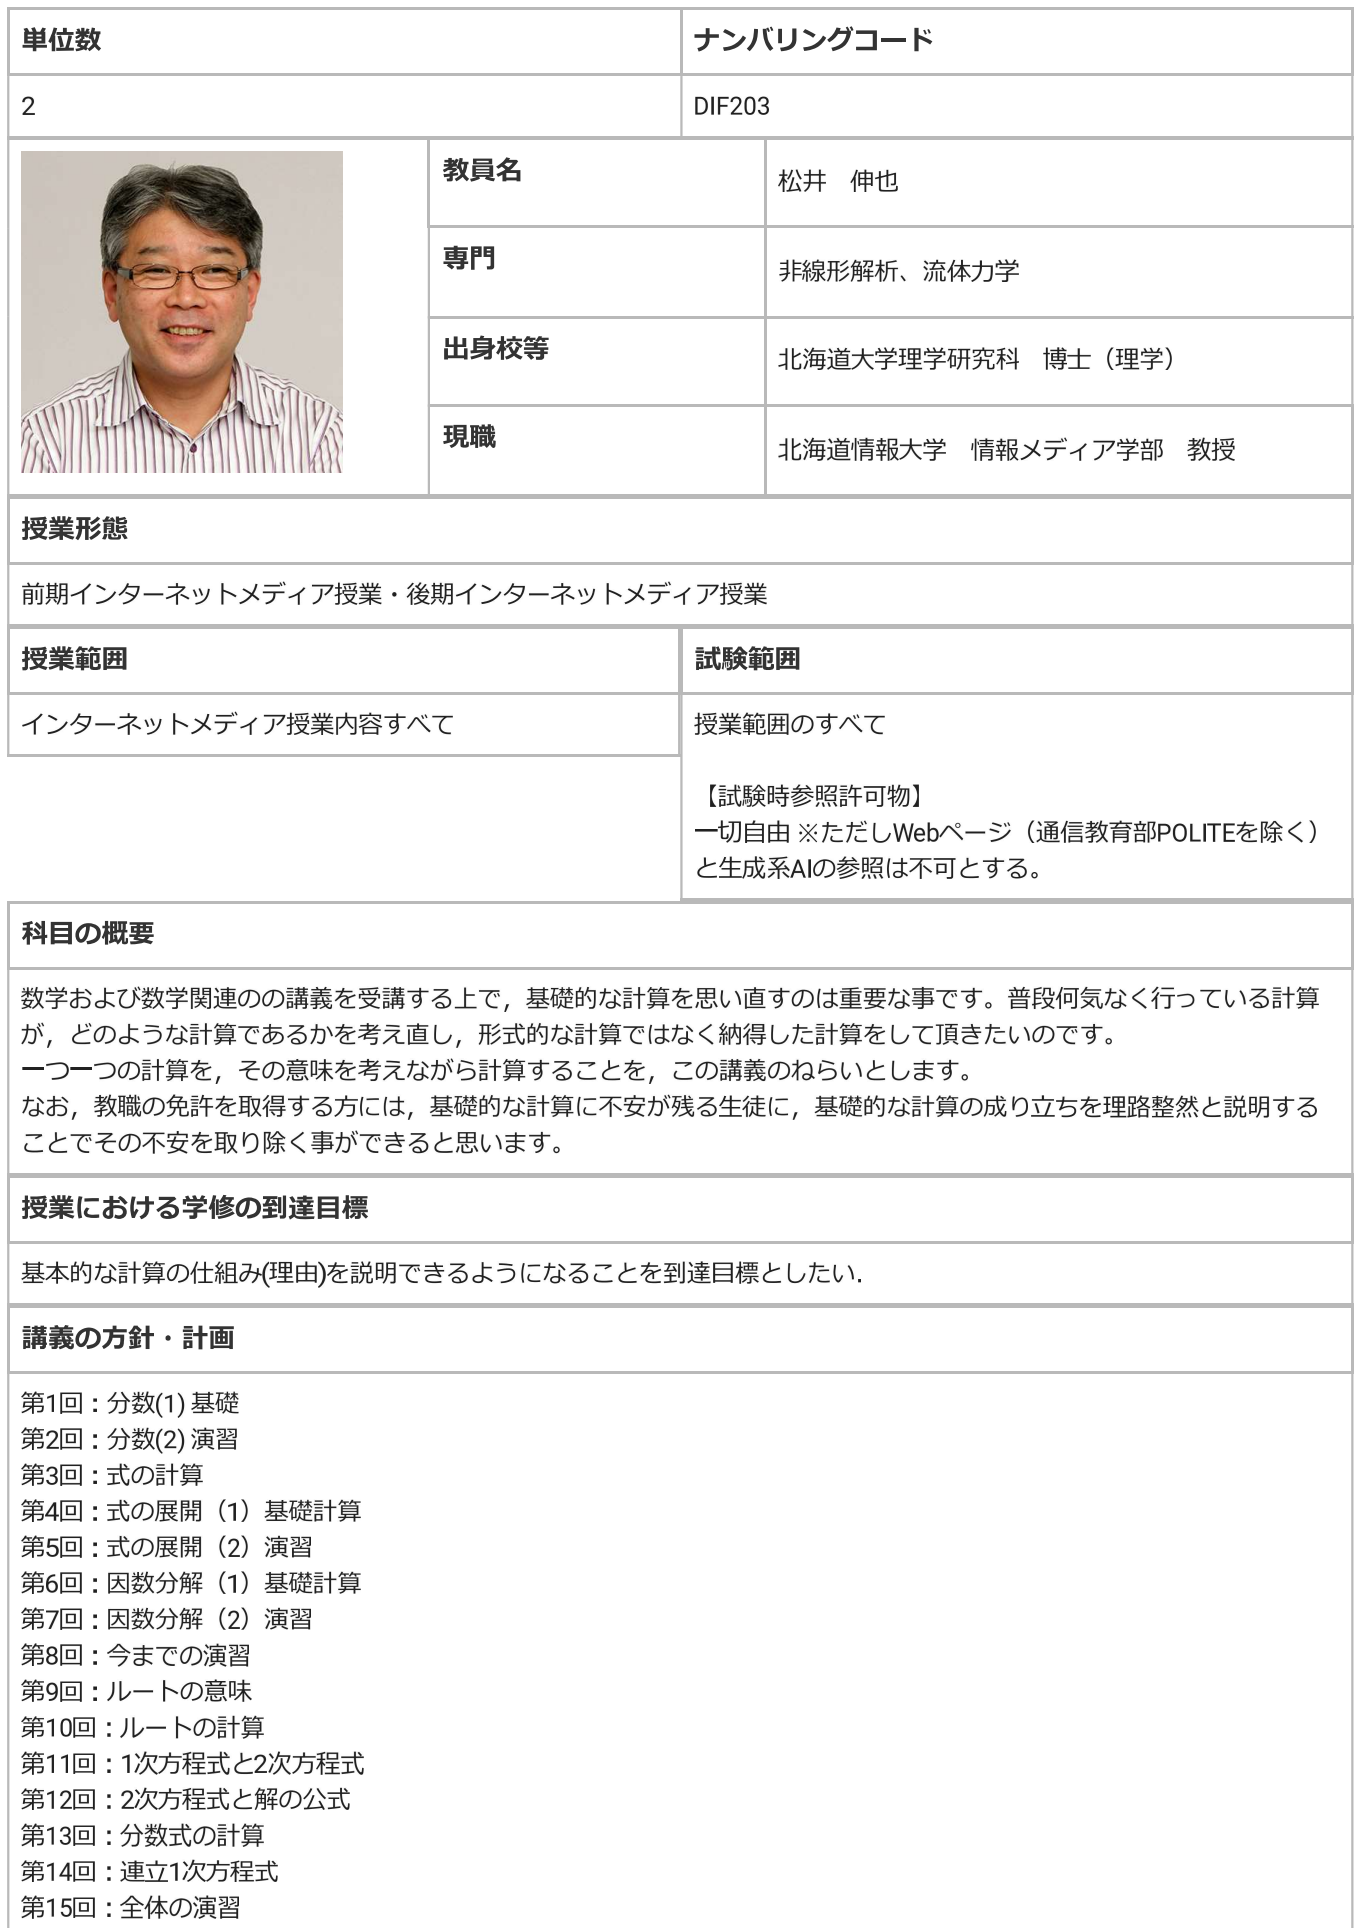 単位数
ナンバリングコード
2
DIF203
教員名
松井　伸也
専門
非線形解析、流体力学
出身校等
北海道大学理学研究科　博士（理学）
現職
北海道情報大学　情報メディア学部　教授
授業形態
前期インターネットメディア授業・後期インターネットメディア授業
授業範囲
インターネットメディア授業内容すべて
試験範囲
授業範囲のすべて
【試験時参照許可物】
一切自由 ※ただしWebページ（通信教育部POLITEを除く）
と生成系AIの参照は不可とする。
科目の概要
数学および数学関連のの講義を受講する上で，基礎的な計算を思い直すのは重要な事です。普段何気なく行っている計算
が，どのような計算であるかを考え直し，形式的な計算ではなく納得した計算をして頂きたいのです。
一つ一つの計算を，その意味を考えながら計算することを，この講義のねらいとします。
なお，教職の免許を取得する方には，基礎的な計算に不安が残る生徒に，基礎的な計算の成り立ちを理路整然と説明する
ことでその不安を取り除く事ができると思います。
授業における学修の到達目標
基本的な計算の仕組み(理由)を説明できるようになることを到達目標としたい.
講義の方針・計画
第1回：分数(1) 基礎
第2回：分数(2) 演習
第3回：式の計算
第4回：式の展開（1）基礎計算
第5回：式の展開（2）演習
第6回：因数分解（1）基礎計算
第7回：因数分解（2）演習
第8回：今までの演習
第9回：ルートの意味
第10回：ルートの計算
第11回：1次方程式と2次方程式
第12回：2次方程式と解の公式
第13回：分数式の計算
第14回：連立1次方程式
第15回：全体の演習